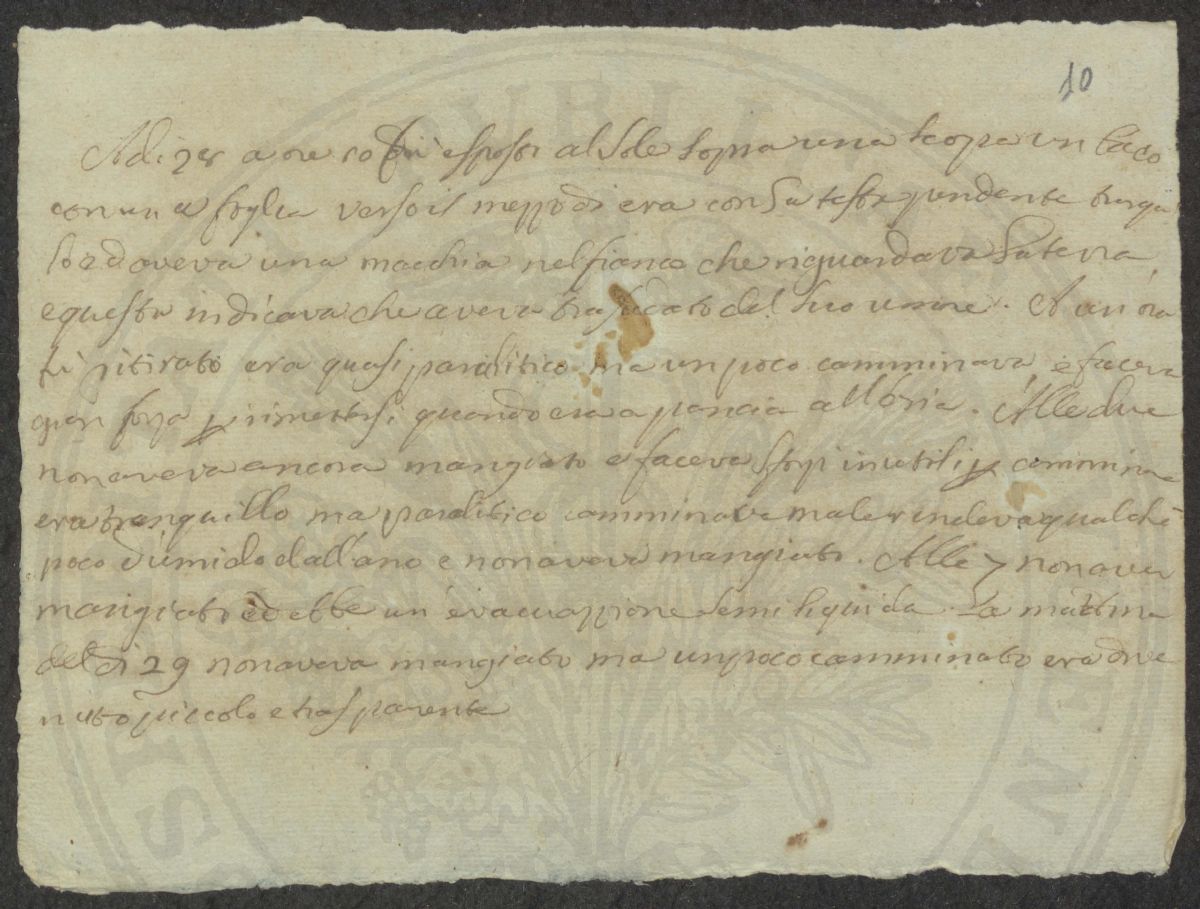 10
Adi 28 a ore 10 fù espossi al Sole sopra una scopa un baco
con una foglia verso il mezzo dì era con la testa pendente
ed aveva una macchia nel fianco che riguardava la terra
e questa indicava che aveva trasudato del suo umore. A un'ora
fù ritirato era quasi paralitico ma un poco camminava e faceva
gran forza p rimettersi quando era a pancia all'aria. Alle due
non aveva ancora mangiato e faceva sforzi inutili p camminare
era tranquillo ma paralitico camminava male rendeva qualche
poco d'umido dall'ano e non aveva mangiato. Alle 7 non avea
mangiato ed ebbe un'evacuazzione semiliquida. La mattina
del dì 29 non aveva mangiato ma un poco camminato era dive
nuto piccolo e trasparente
SOCIETAS PUBLICAE